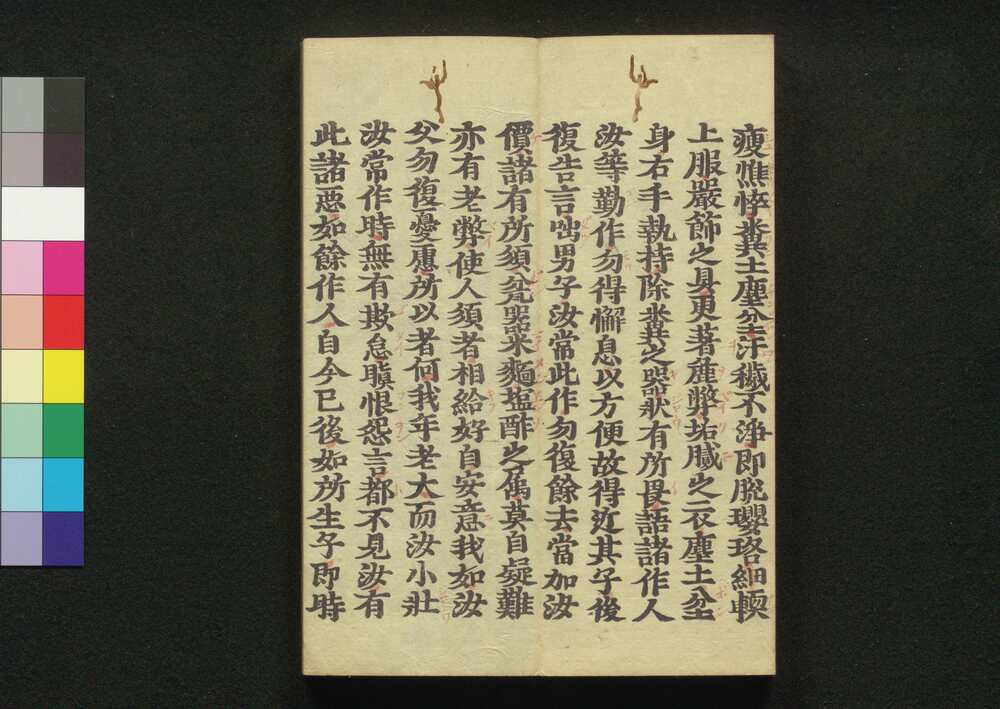 瘦憔悴糞土塵坌汙穢不淨即脫瓔珞細軟
上服嚴飾之具更著麁弊垢膩之衣塵土坌
身右手執持除糞之器狀有所畏語諸作人
汝等勤作勿得懈息以方便故得近其子後
復告言咄男子汝常此作勿復餘去當加汝
價諸有所須瓫器米麵塩酢之属莫自疑難
亦有老弊使人須者相給好自安意我如汝
父勿復憂慮所以者何我年老大而汝小壯
汝常作時無有欺怠瞋恨怨言都不見汝有
此諸惡如餘作人自今已後如所生子即時